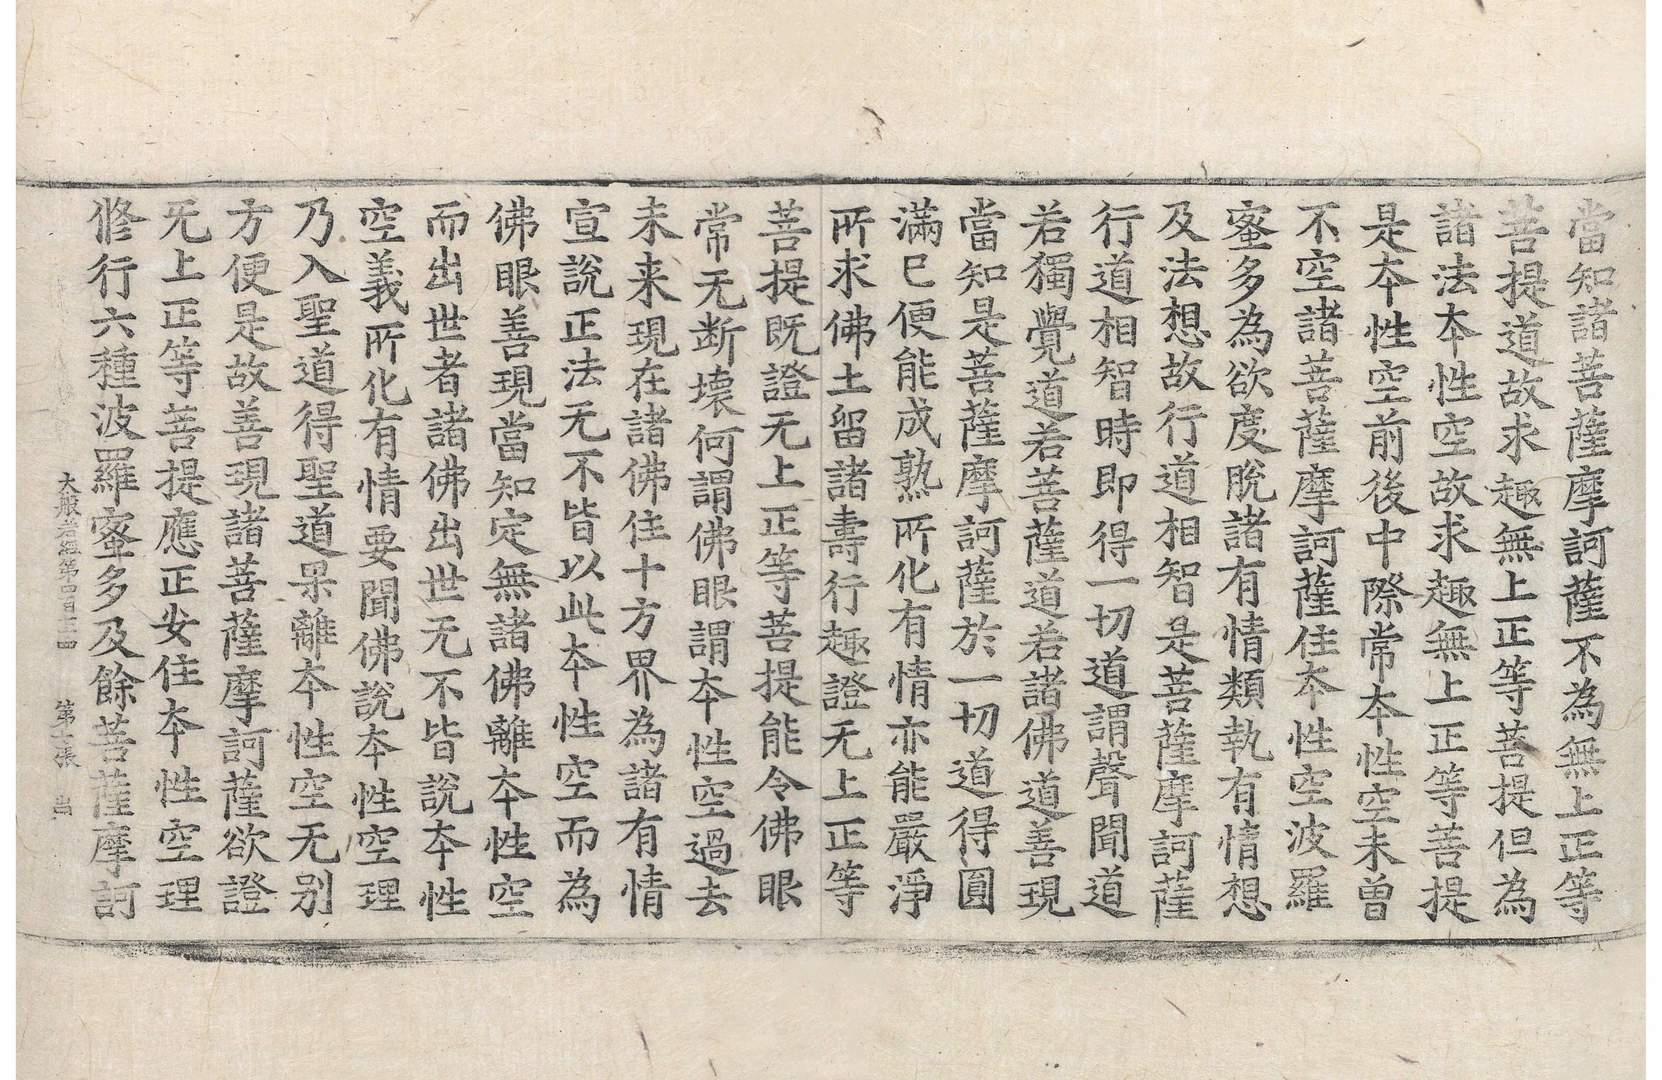 當知諸菩薩摩訶薩不為無上正等
菩提道故求趣無上正等菩提但為
諸法夲性空故求趣無上正等菩提
是夲性空前後中際常夲性空未曾
不空諸菩薩摩訶薩住夲性空波羅
蜜多為欲度脫諸有情類執有情想
及法想故行道相智是菩薩摩訶薩
行道相智時即得一切道謂聲聞道
若獨覺道若菩薩道若諸佛道善現
當知是菩薩摩訶薩於一切道得圓
滿已便能成熟所化有情亦能嚴淨
所求佛土留諸壽行趣證无上正等
菩提既證无上正等菩提能令佛眼
常无断壞何謂佛眼謂夲性空過去
未来現在諸佛住十方界為諸有情
宣說正法无不皆以此夲性空而為
佛眼善現當知定無諸佛離夲性空
而出世者諸佛出世无不皆說夲性
空義所化有情要聞佛說夲性空理
乃入聖道得聖道果離夲性空无别
方便是故善現諸菩薩摩訶薩欲證
无上正等菩提應正安住夲性空理
修行六種波羅蜜多及餘菩薩摩訶
大般若經第四百七十四 第七張 当